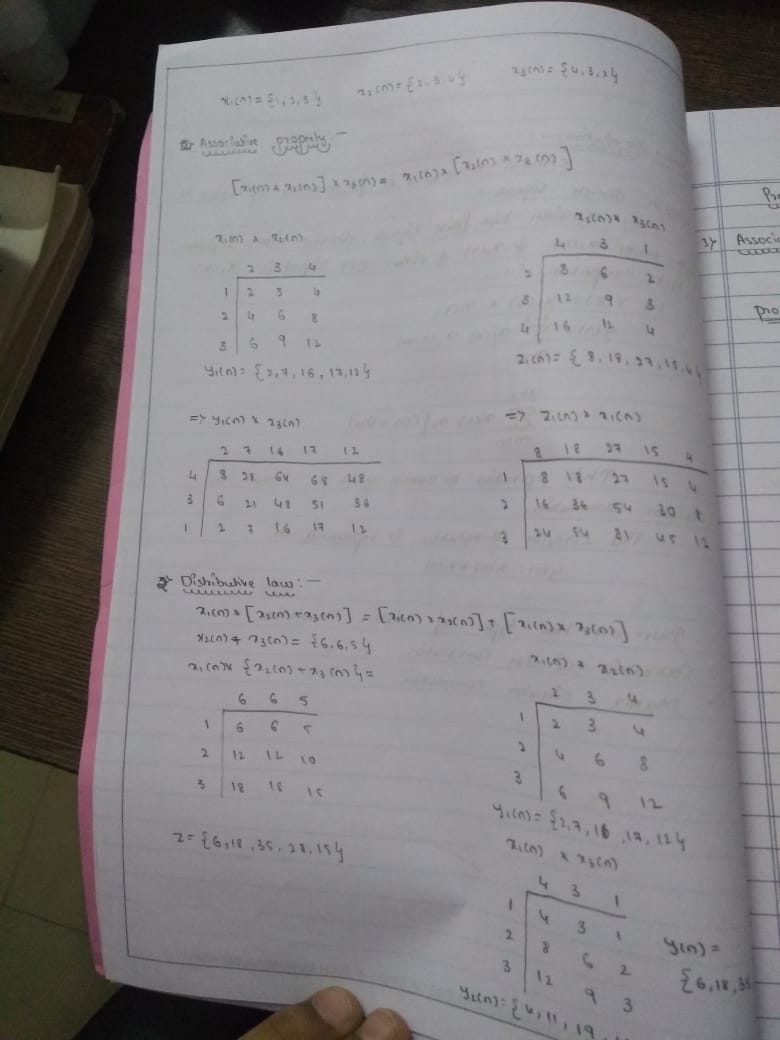 x1(n) = {1,2,3}   x2(n) = {2,3,4}   x3(n) = {4,3,1}
Associative property:-
[x1(n) * x2(n)] * x3(n) = x1(n) * [x2(n) * x3(n)]
x1(n) * x2(n)
2 3 4
1 2 3 4
2 4 6 8
3 6 9 12
y1(n) = {2,7,16,17,12}
x2(n) * x3(n)
4 3 1
2 8 6 2
3 12 9 3
4 16 12 4
z1(n) = { 8,18,27,15,4
=> y1(n) * x3(n)
2 7 16 17 12
4 8 28 64 68 48
3 6 21 48 51 36
1 2 7 16 17 12
=> z1(n) * x1(n)
8 18 27 15 4
1 8 18 27 15 4
2 16 36 54 30 8
3 24 54 81 45 12
2) Distributive law:-
x1(n) * [x2(n) + x3(n)] = [x1(n) * x2(n)] + [x1(n) * x3(n)]
x2(n) + x3(n) = {6,6,5}
x1(n) * {x2(n) + x3(n)} =
6 6 5
1 6 6 5
2 12 12 10
3 18 18 15
z = {6,18,35,28,15}
x1(n) * x2(n)
2 3 4
1 2 3 4
2 4 6 8
3 6 9 12
y1(n) = {2,7,16,17,12}
x1(n) * x3(n)
4 3 1
1 4 3 1
2 8 6 2
3 12 9 3
y2(n) = {4,11,19,
y(n) =
{6,18,35
1) Associ
pro